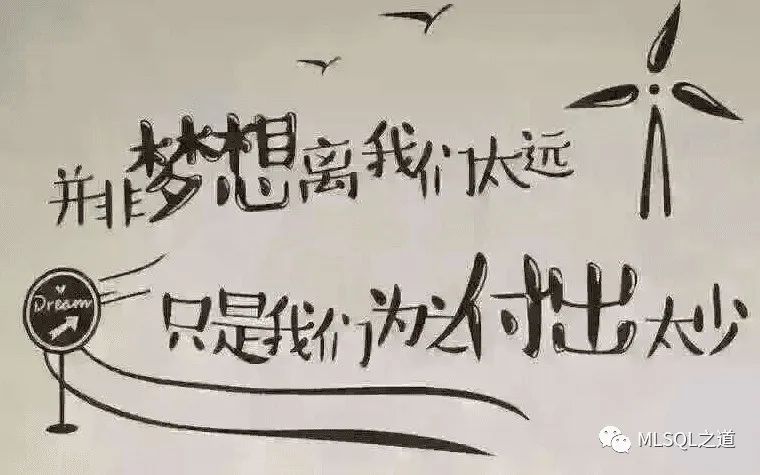 并非梦想离我们太远
Dream
只是我们为之付出太少
MLSQL之道